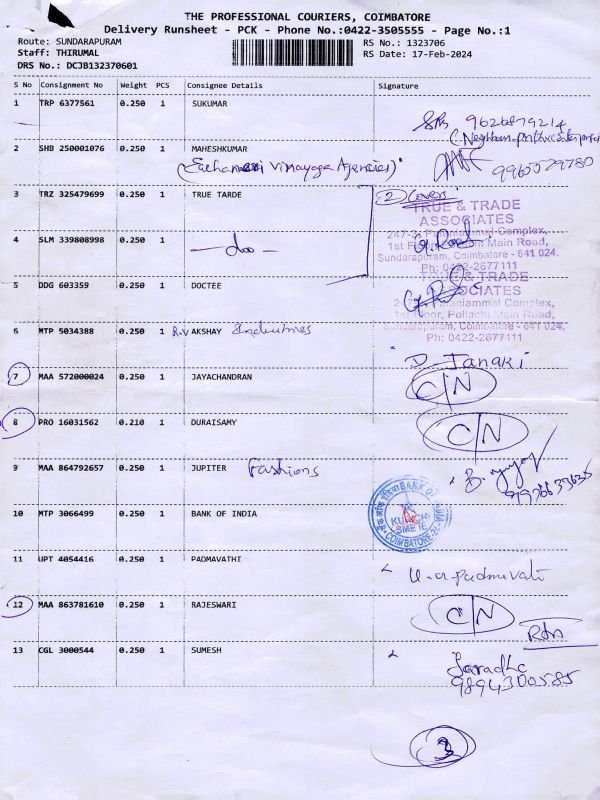 THE PROFESSIONAL COURIERS, COIMBATORE
Delivery Runsheet - PCK - Phone No.:0422-3505555 - Page No.:1
Route: SUNDARAPURAM
RS No.: 1323706
Staff: THIRUMAL
RS Date: 17-Feb-2024
DRS No.: DCJB132370601
S No Consignment No Weight PCS Consignee Details Signature
1 TRP 6377561 0.250 1 SUKUMAR
9626879214
2 SHB 250001076 0.250 1 MAHESHKUMAR
Vinayaga Agencies)
9965579780
3 TRZ 325479699 0.250 1 TRUE TARDE
2 Covers
TRUE & TRADE
ASSOCIATES
Palaniammal Complex,
4 SLM 339808998 0.250 1 - do -
1st Floor, Pollachi Main Road,
Sundarapuram, Coimbatore - 641 024.
Ph: 0422-2677111
5 DDG 603359 0.250 1 DOCTEE
TRUE & TRADE
ASSOCIATES
Palaniammal Complex,
1st Floor, Pollachi Main Road,
6 MTP 5034388 0.250 1 R.V AKSHAY Industries
Sundarapuram, Coimbatore - 641 024.
Ph: 0422-2677111
D. Janaki
7 MAA 572000024 0.250 1 JAYACHANDRAN
C/N
8 PRO 16031562 0.210 1 DURAISAMY
C/N
9 MAA 864792657 0.250 1 JUPITER Fashions
10 MTP 3066499 0.250 1 BANK OF INDIA
BANK OF INDIA
COIMBATORE-24
11 UPT 4054416 0.250 1 PADMAVATHI
U.a.Padmavati
12 MAA 863781610 0.250 1 RAJESWARI
C/N
Rtn
13 CGL 3000544 0.250 1 SUMESH
Saradha
9894300585
3